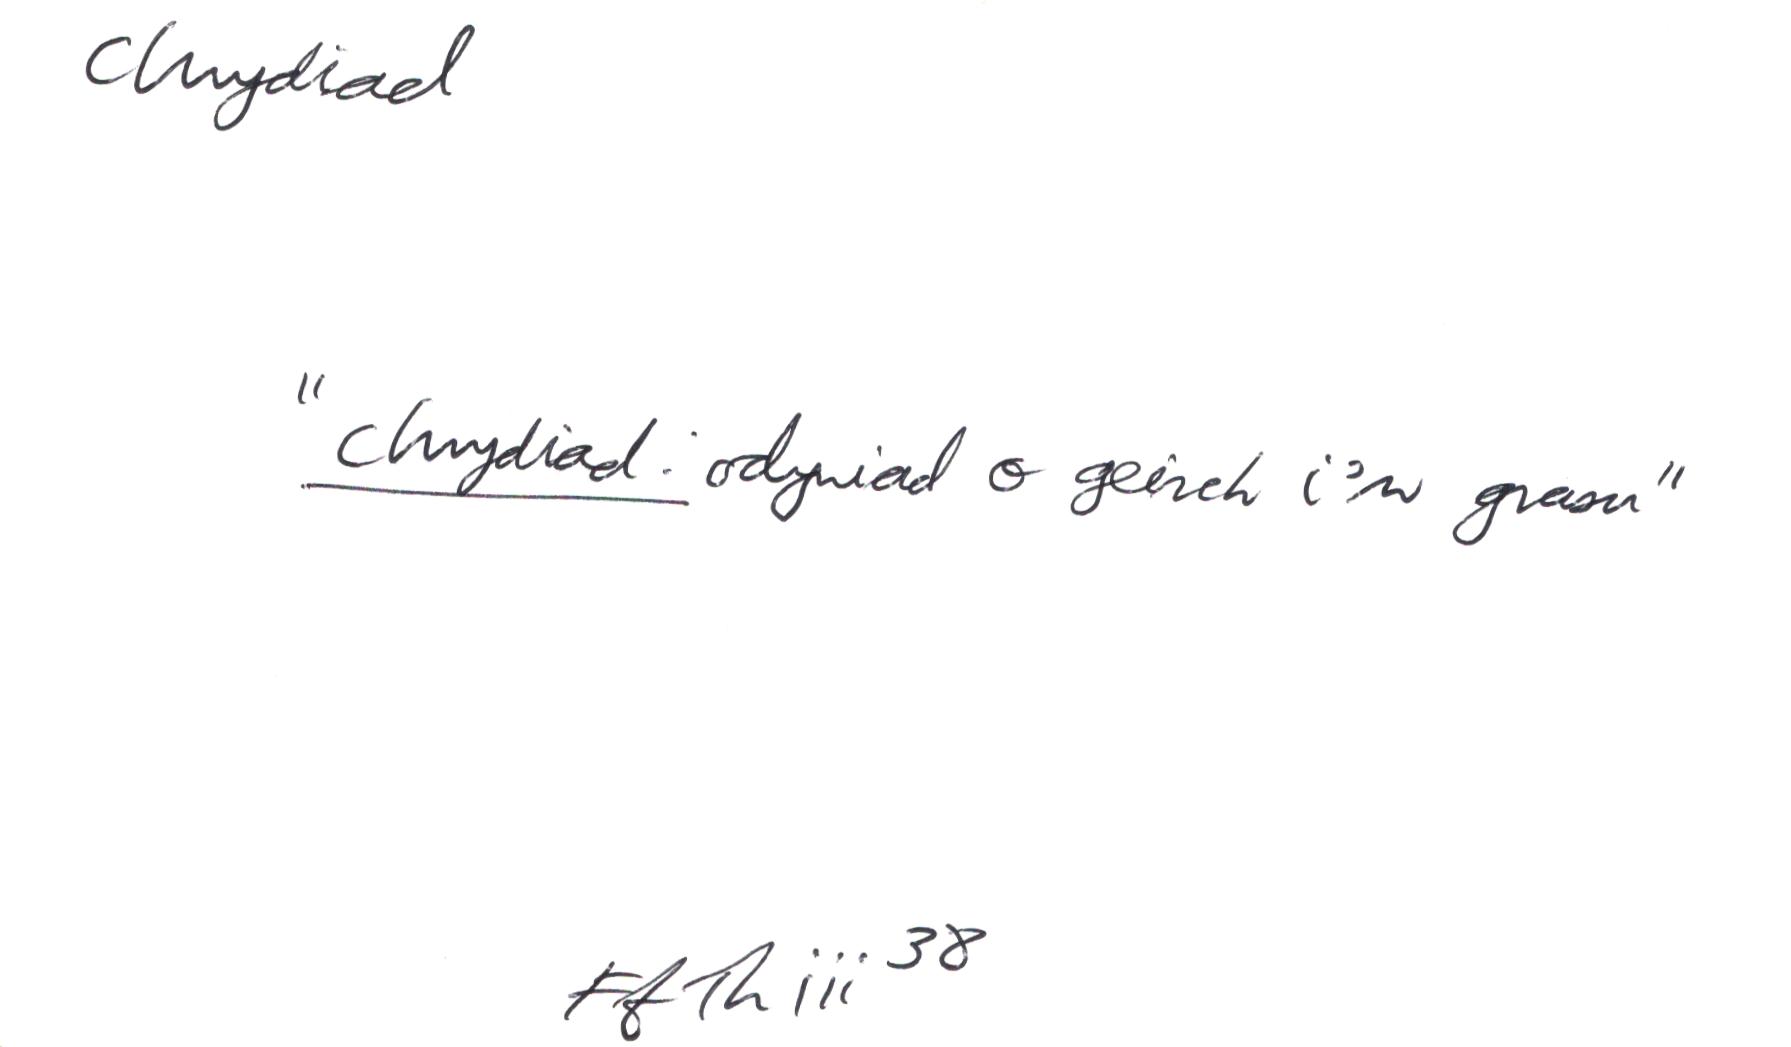 clwydiad
"clwydiad: odyniad o geirch i'w grasu"
FfTh iii 38